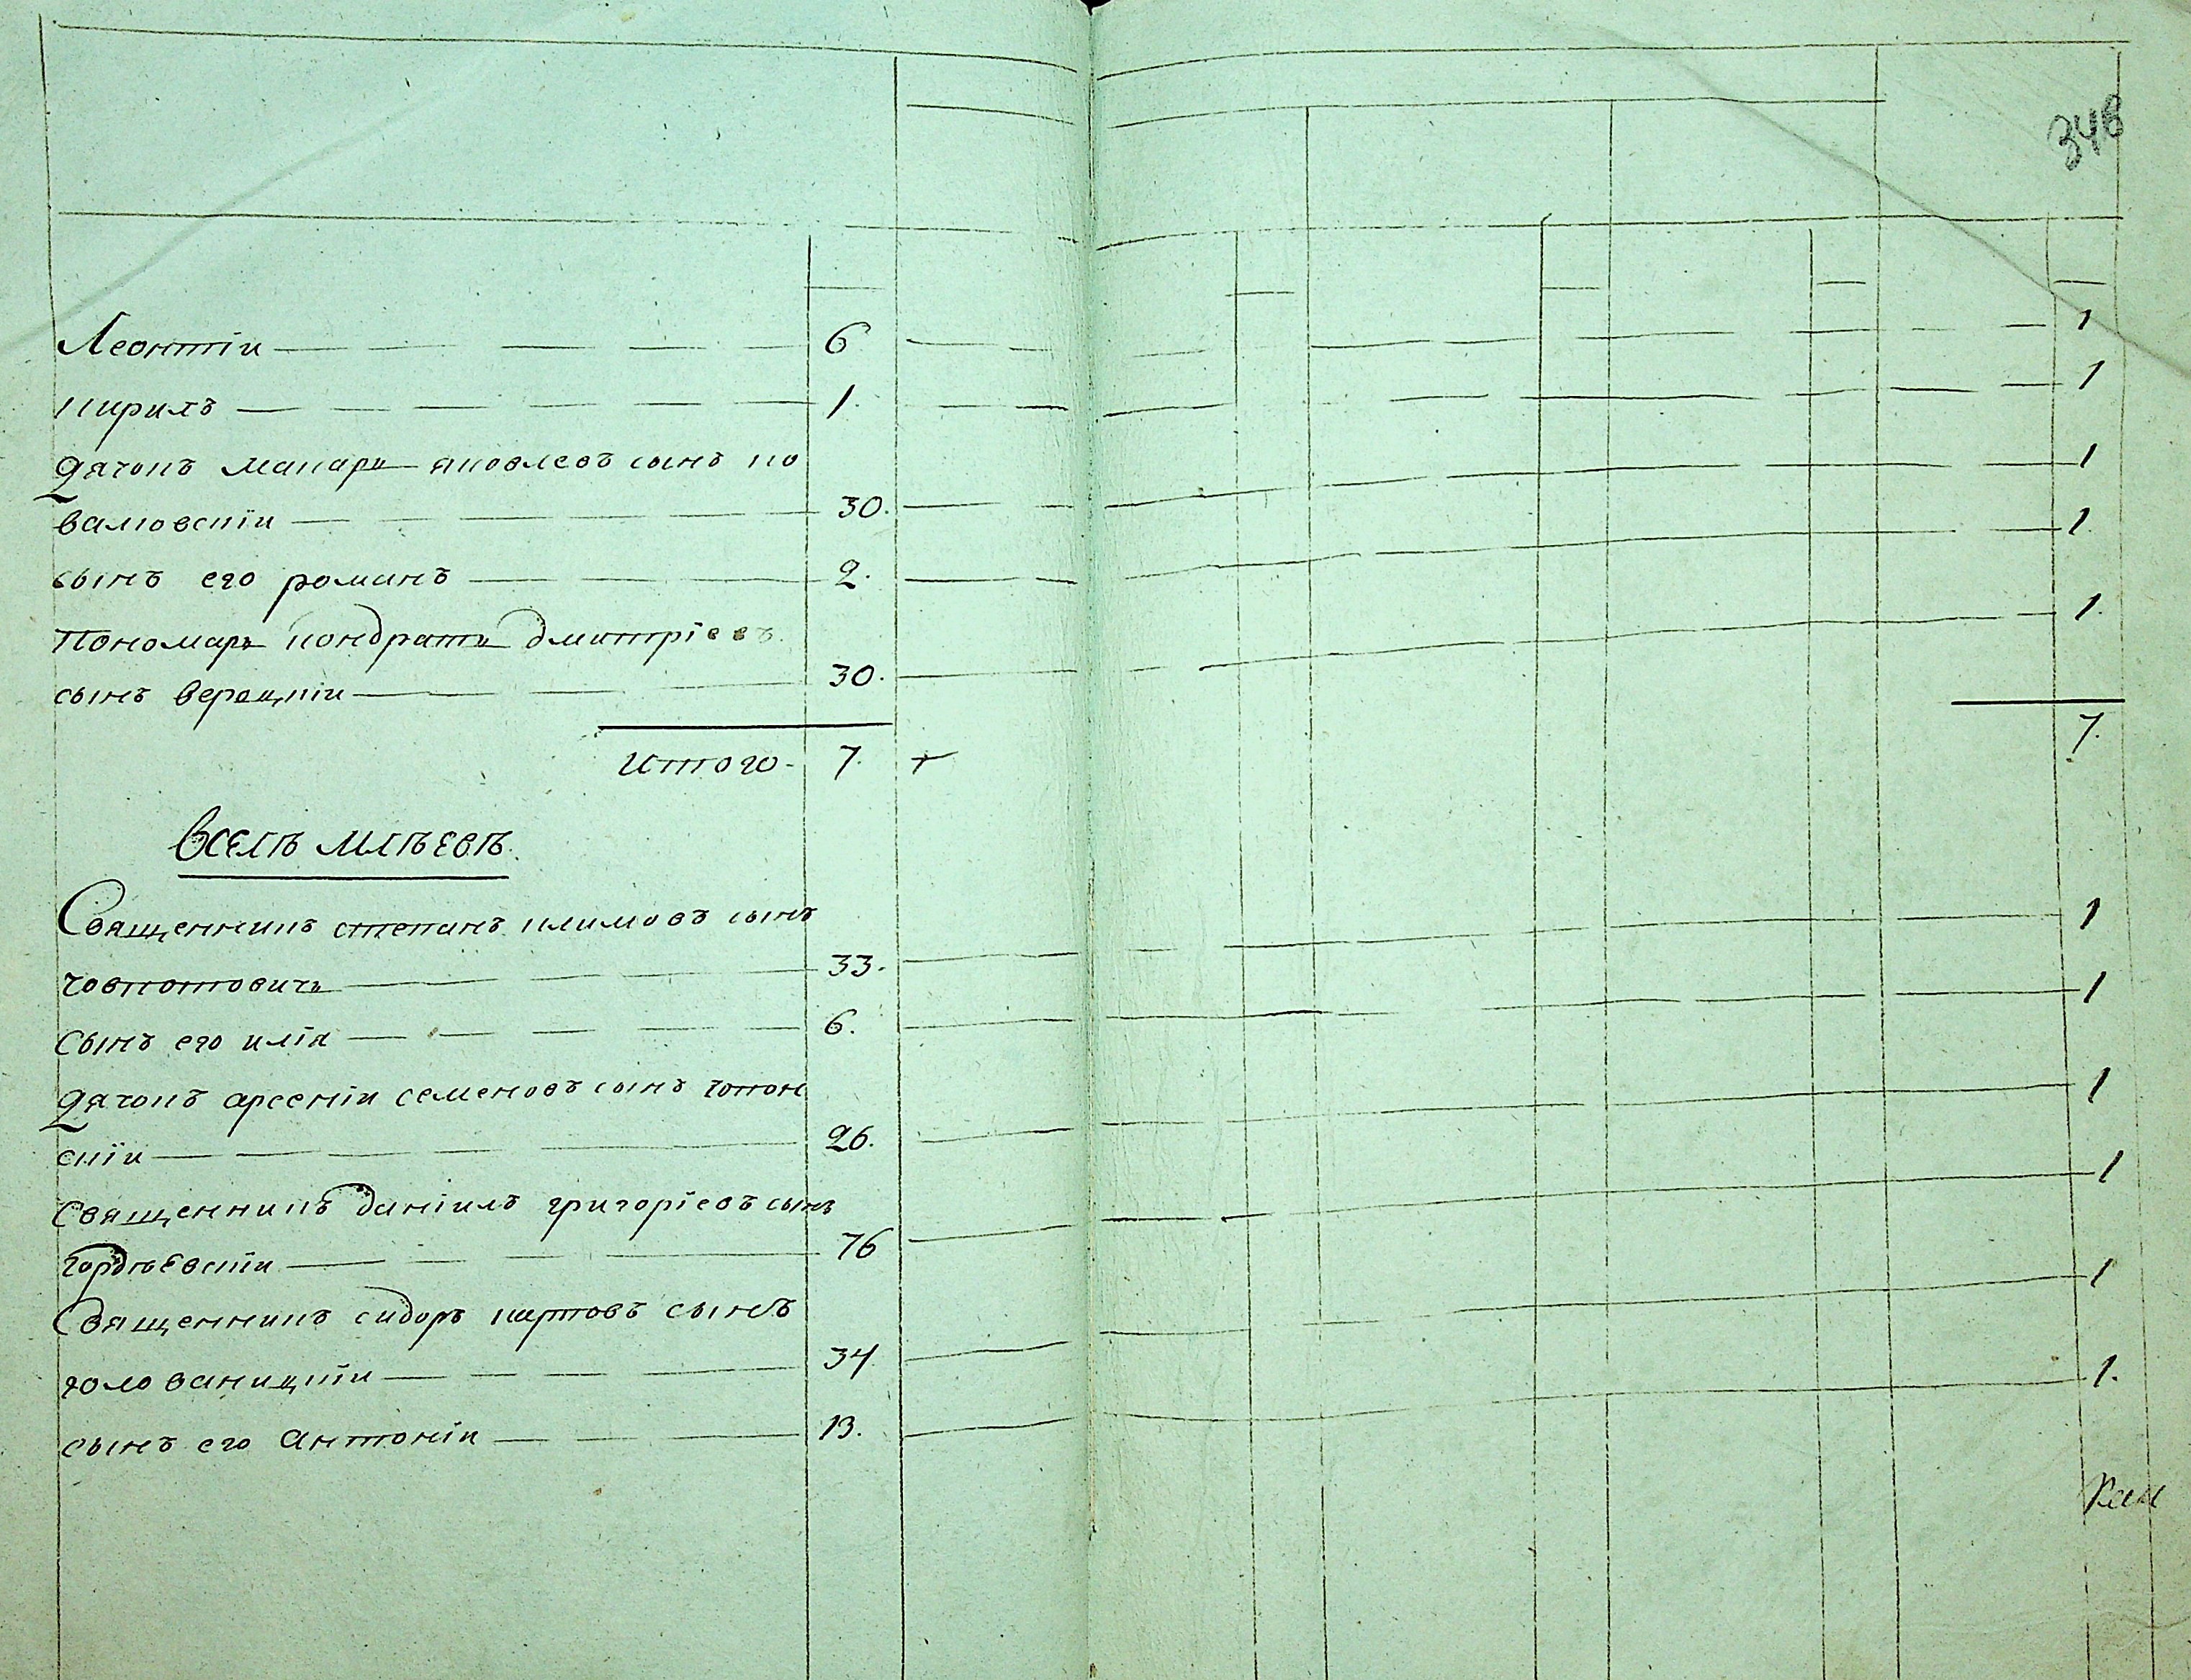 348
Леонтіи — 6 — 1
кирилъ — 1. — 1
Дячокъ макаръ яковлевъ сынъ ко
валювскіи — 30. — 1
сынъ его романъ — 2. — 1.
Пономарь кондратъ дмитріевъ
сынъ верецкіи — 30. — 1.
Итого - 7. + 7.
Вселѣ млѣевѣ.
Священникъ степанъ климовъ сынъ
човпотовичъ — 33. — 1
Сынъ его илія — 6. — 1
Дячокъ арсеніи семеновъ сынъ топол
скіи — 26. — 1
Священникъ даніилъ григоріевъ сынъ
гордѣевскіи — 76 — 1
Священникъ сидоръ сынъ
голованицкіи — 34 — 1
сынъ его антоніи — 13. — 1.